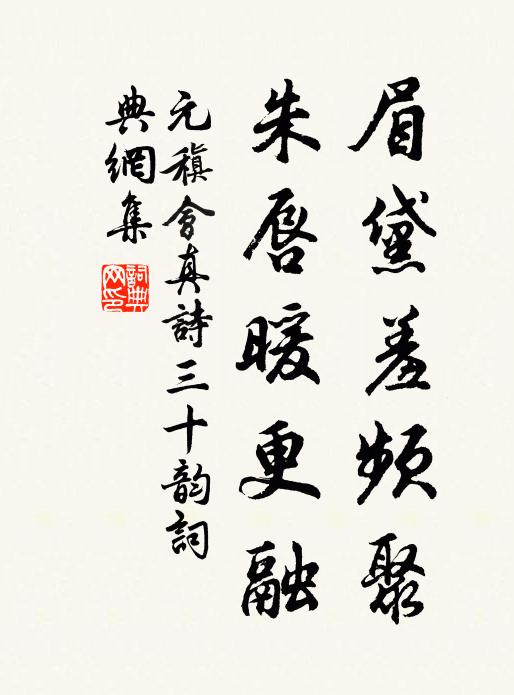 眉黛羞頻聚
朱唇暖更融
元稹會真詩三十韵詞
典網集
詞典網印